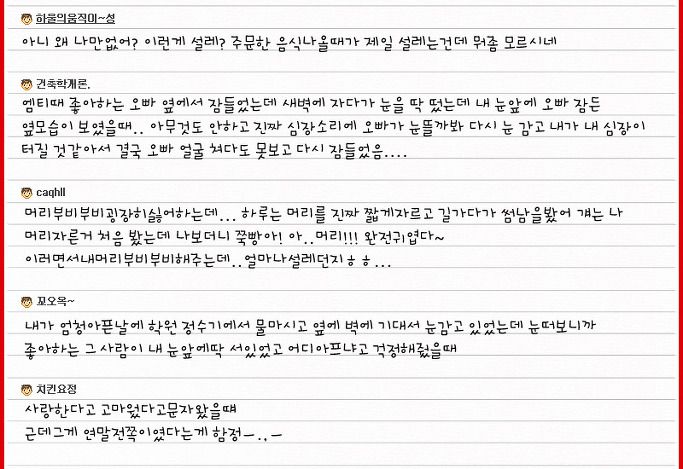 하울의움직이~성
아니 왜 나만없어? 이런게 설레? 주문한 음식나올때가 제일 설레는건데 뭐좀 모르시네
건축학개론.
엠티때 좋아하는 오빠 옆에서 잠들었는데 새벽에 자다가 눈을 딱 떴는데 내 눈앞에 오빠 잠든
옆모습이 보였을때.. 아무것도 안하고 진짜 심장소리에 오빠가 눈뜰까봐 다시 눈 감고 내가 내 심장이
터질 것같아서 결국 오빠 얼굴 쳐다도 못보고 다시 잠들었음....
caqhll
머리부비부비굉장히싫어하는데... 하루는 머리를 진짜 짧게자르고 길가다가 썸남을봤어 걔는 나
머리자른거 처음 봤는데 나보더니 쭉빵아! 아..머리!!! 완전귀엽다~
이러면서내머리부비부비해주는데..얼마나설레던지ㅎㅎ...
꼬오옥~
내가 엄청아픈날에 학원 정수기에서 물마시고 옆에 벽에 기대서 눈감고 있었는데 눈떠보니까
좋아하는 그 사람이 내 눈앞에딱 서있었고 어디아프냐고 걱정해줬을때
치킨요정
사랑한다고 고마웠다고문자왔을떄
근데그게 연말전쪽이였다는게 함정ㅡ.,ㅡ